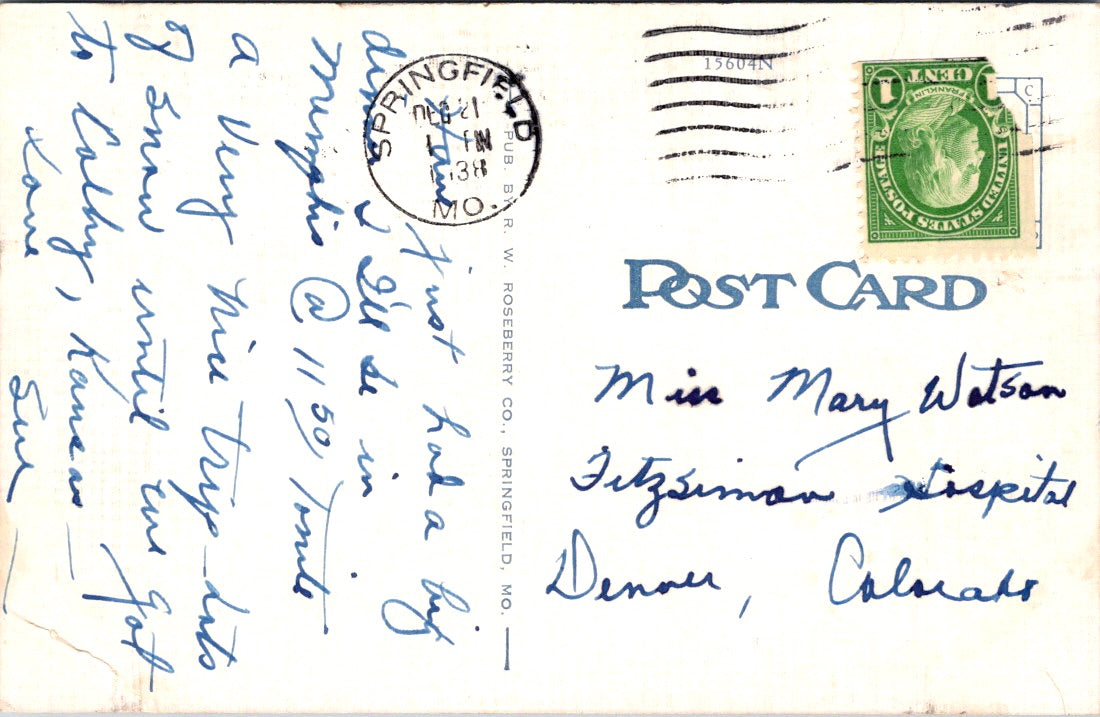 Have just had a big
dinner & I'll be in
Memphis @ 11 50, Tonite
a very nice trip - lots
of snow until we got
to Colby, Kansas -
Love
Sue
SPRINGFIELD
DEC 21
1 PM
1938
MO.
PUB. BY R. W. ROSEBERRY CO., SPRINGFIELD, MO.
15604N
UNITED STATES POSTAGE
FRANKLIN
1 CENT 1
POST CARD
Miss Mary Watson
Fitzsimon Hospital
Denver, Colorado